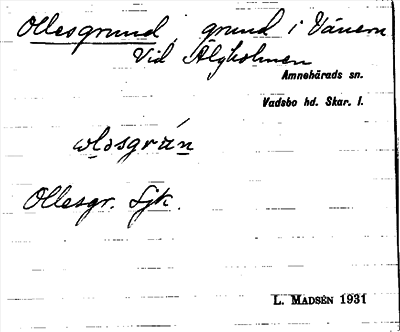 Ollesgrund, grund i Vänern
Vid Älgholmen
Amnehärads sn.
Vadsbo hd. Skar. l.
Ollesgr. Sjk.
L. MADSÉN 1931